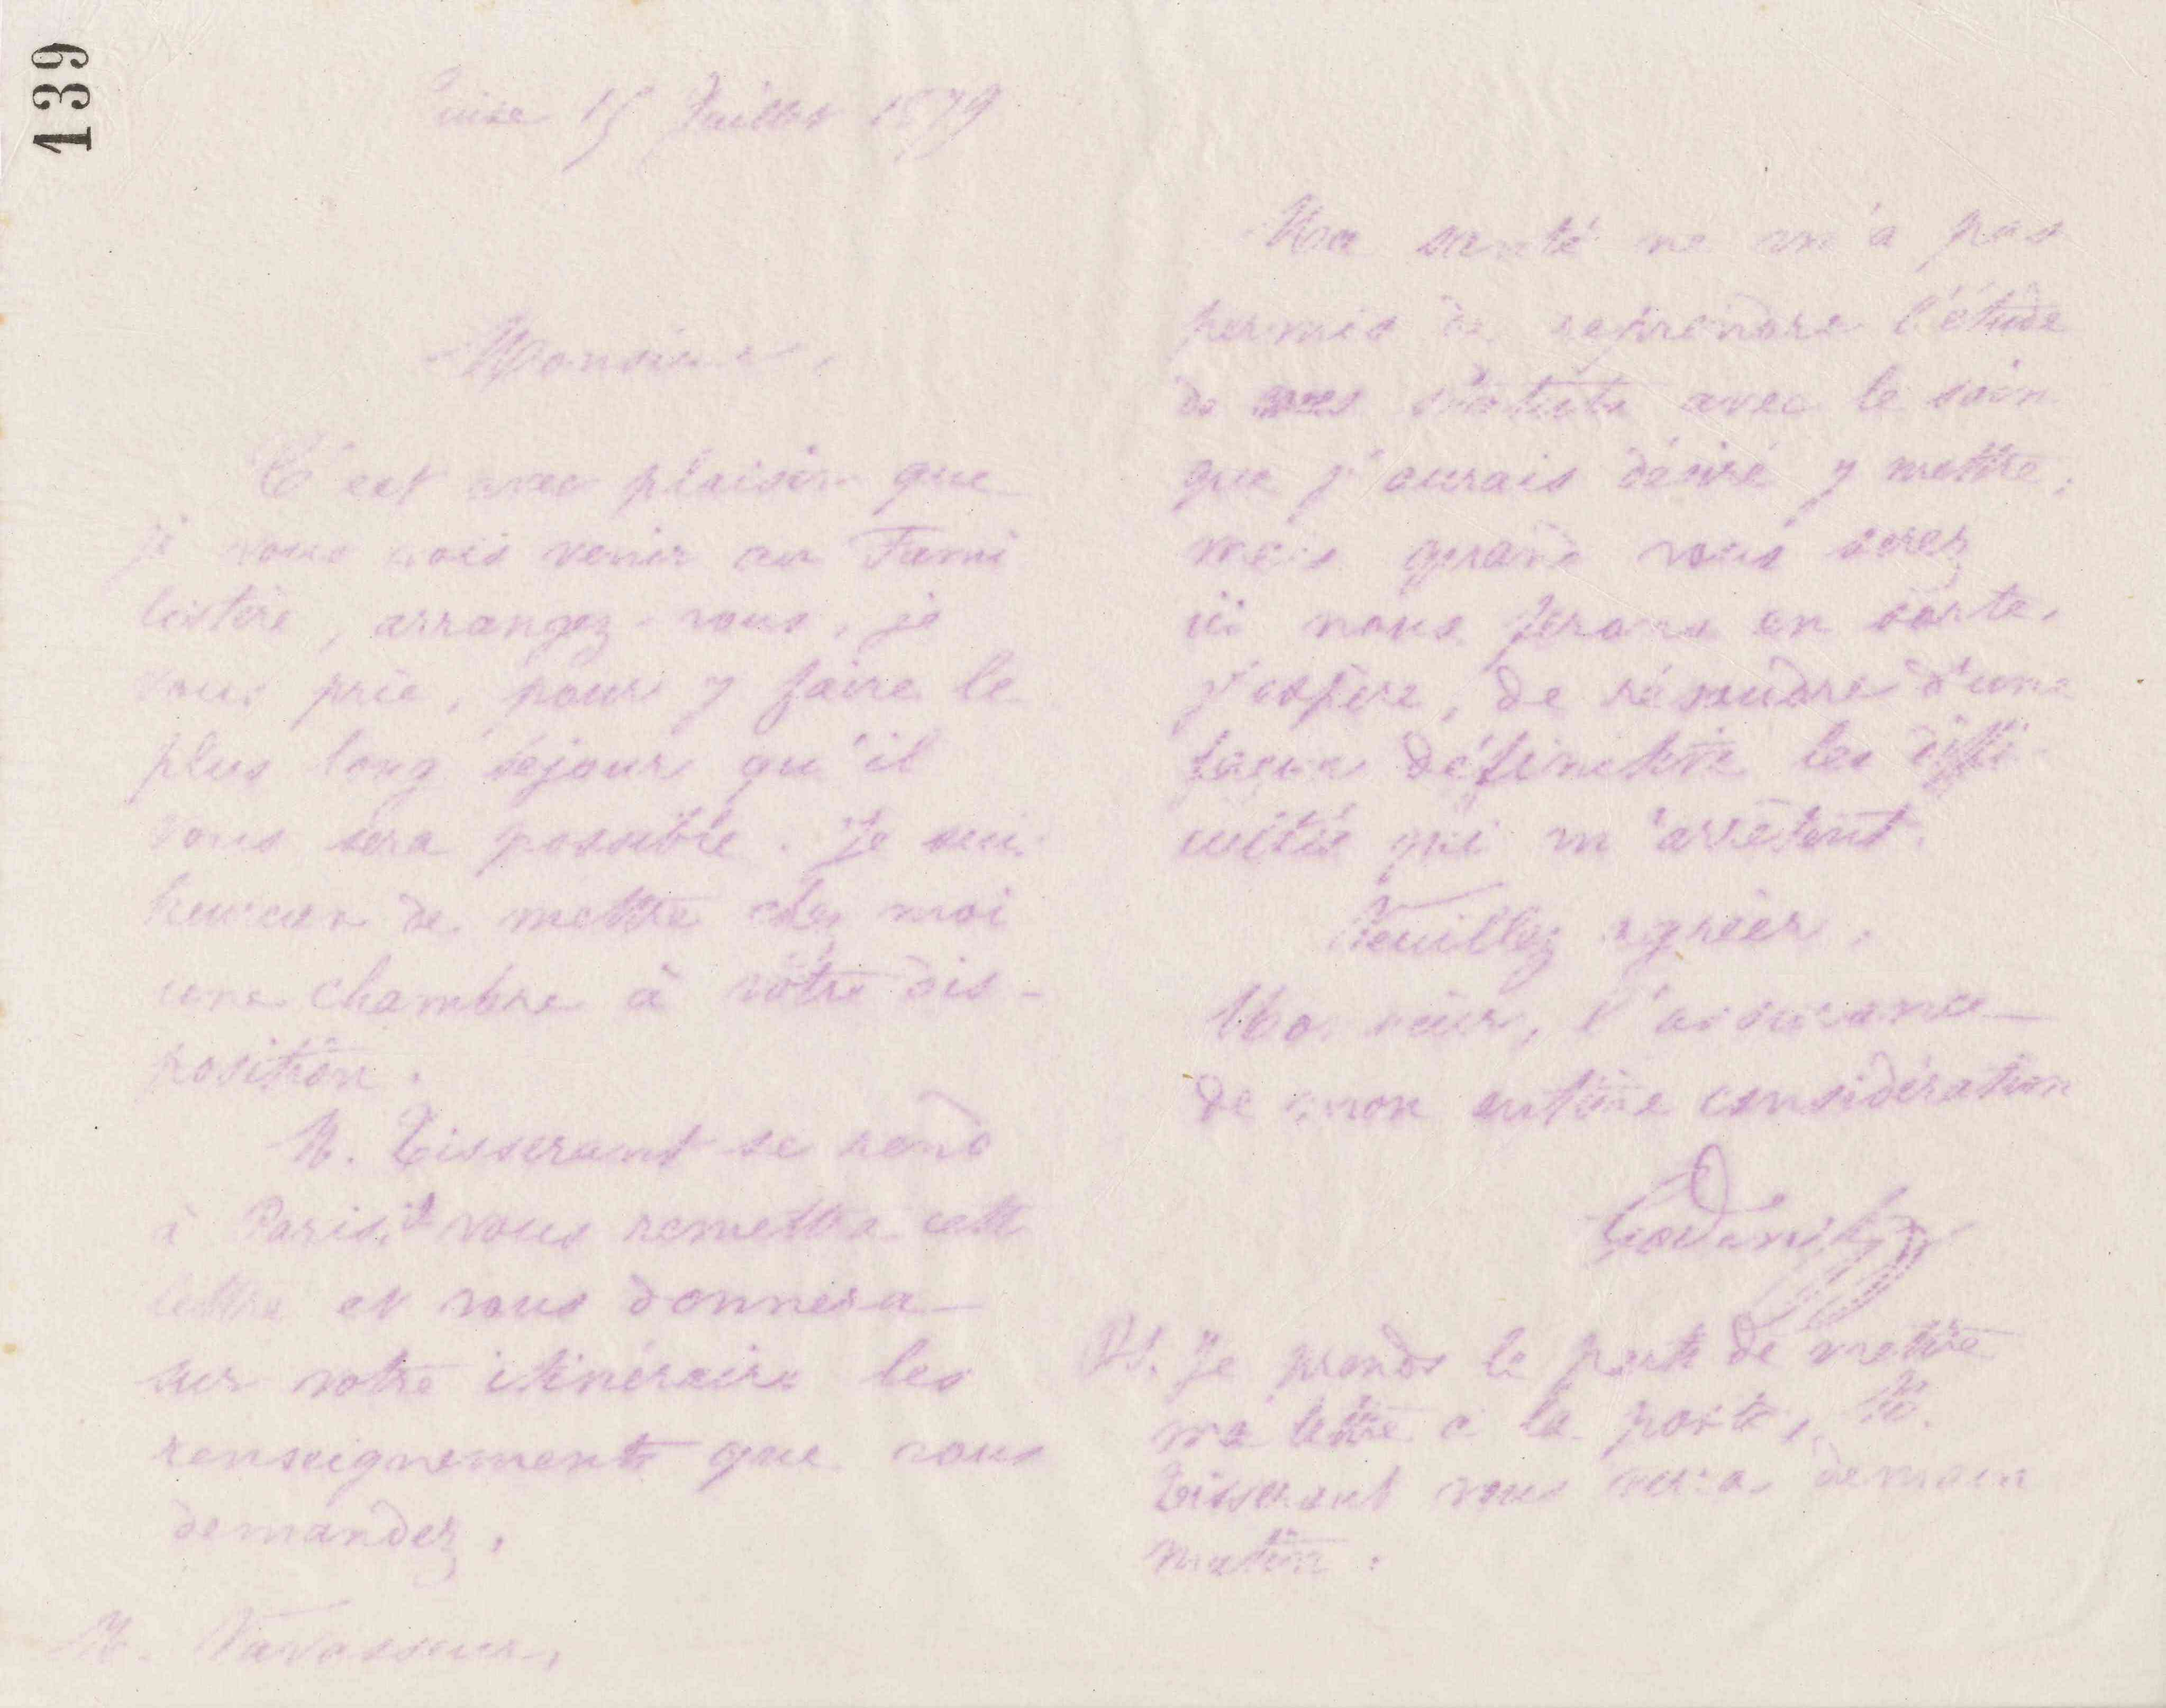 139
Guise 15 Juillet 1879
Monsieur,
C'est avec plaisir que
je vous vois venir au Fami
listère, arrangez-vous, je
vous prie, pour y faire le
plus long séjour qu'il
vous sera possible. Je suis
heureux de mettre chez moi
une chambre à votre dis-
position.
M. Tisserant se rend
à Paris, il vous remettra cette
lettre et vous donnera
sur votre itinéraire les
renseignements que vous
demandez.
M. Vavasseur,
Ma santé ne m'a pas
permis de reprendre l'étude
de mes statuts avec le soin
que j'aurais désiré y mettre;
mais quand vous serez
ici nous ferons en sorte,
j'espère, de résoudre d'une
façon définitive les diffi-
cultés qui m'arrêtent.
Veuillez agréer,
Monsieur, l'assurance
de mon entière considération
Godin
PS. Je prends le parti de mettre
ma lettre à la poste, M.
Tisserant vous verra demain
matin.